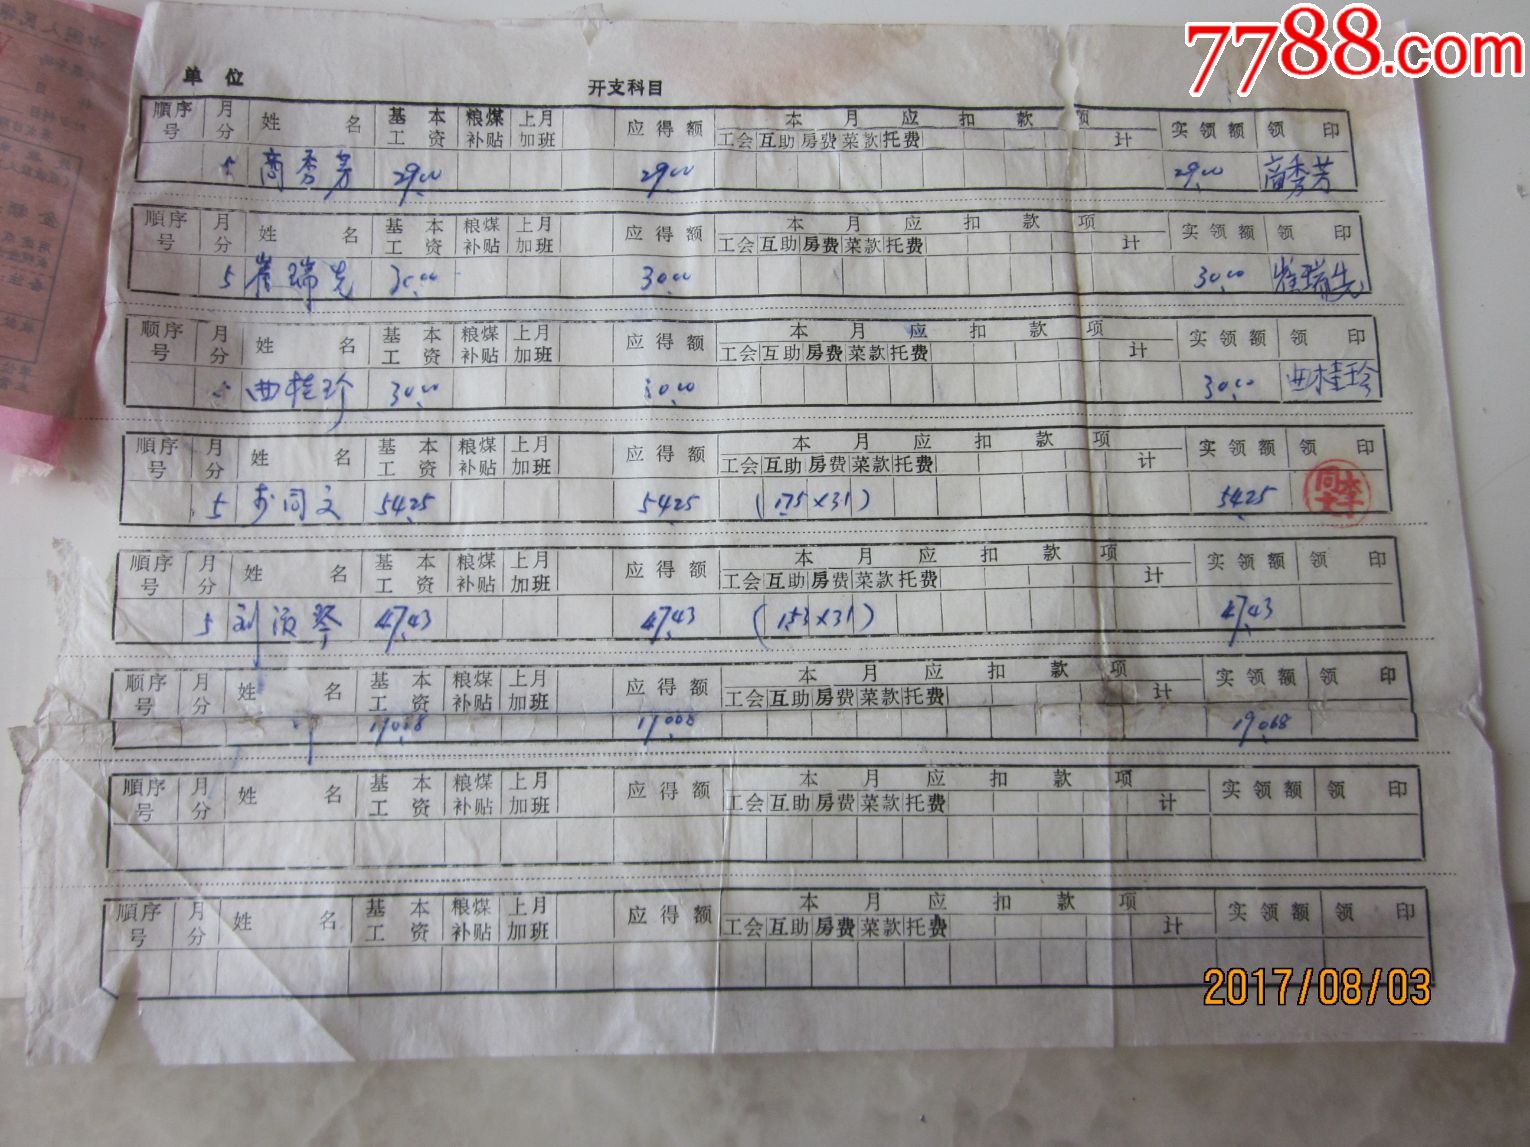 7788.com
单 位
开支科目
順序号 月分 姓 名 基本工资 粮煤补贴 上月加班 应得额 本 月 应 扣 款 项 实领额 领 印
工会 互助 房费 菜款 托费 计
5 商秀芳 29.00 29.00 29.00 商秀芳
順序号 月分 姓 名 基本工资 粮煤补贴 上月加班 应得额 本 月 应 扣 款 项 实领额 领 印
工会 互助 房费 菜款 托费 计
5 崔瑞先 30.00 30.00 30.00 崔瑞先
順序号 月分 姓 名 基本工资 粮煤补贴 上月加班 应得额 本 月 应 扣 款 项 实领额 领 印
工会 互助 房费 菜款 托费 计
5 曲桂珍 30.00 30.00 30.00 曲桂珍
順序号 月分 姓 名 基本工资 粮煤补贴 上月加班 应得额 本 月 应 扣 款 项 实领额 领 印
工会 互助 房费 菜款 托费 计
5 李同文 54.25 54.25 (1.75×31) 54.25 李同文
順序号 月分 姓 名 基本工资 粮煤补贴 上月加班 应得额 本 月 应 扣 款 项 实领额 领 印
工会 互助 房费 菜款 托费 计
5 刘 琴 47.43 47.43 (1.53×31) 47.43
順序号 月分 姓 名 基本工资 粮煤补贴 上月加班 应得额 本 月 应 扣 款 项 实领额 领 印
工会 互助 房费 菜款 托费 计
190.68 190.68 190.68
順序号 月分 姓 名 基本工资 粮煤补贴 上月加班 应得额 本 月 应 扣 款 项 实领额 领 印
工会 互助 房费 菜款 托费 计
順序号 月分 姓 名 基本工资 粮煤补贴 上月加班 应得额 本 月 应 扣 款 项 实领额 领 印
工会 互助 房费 菜款 托费 计
2017/08/03